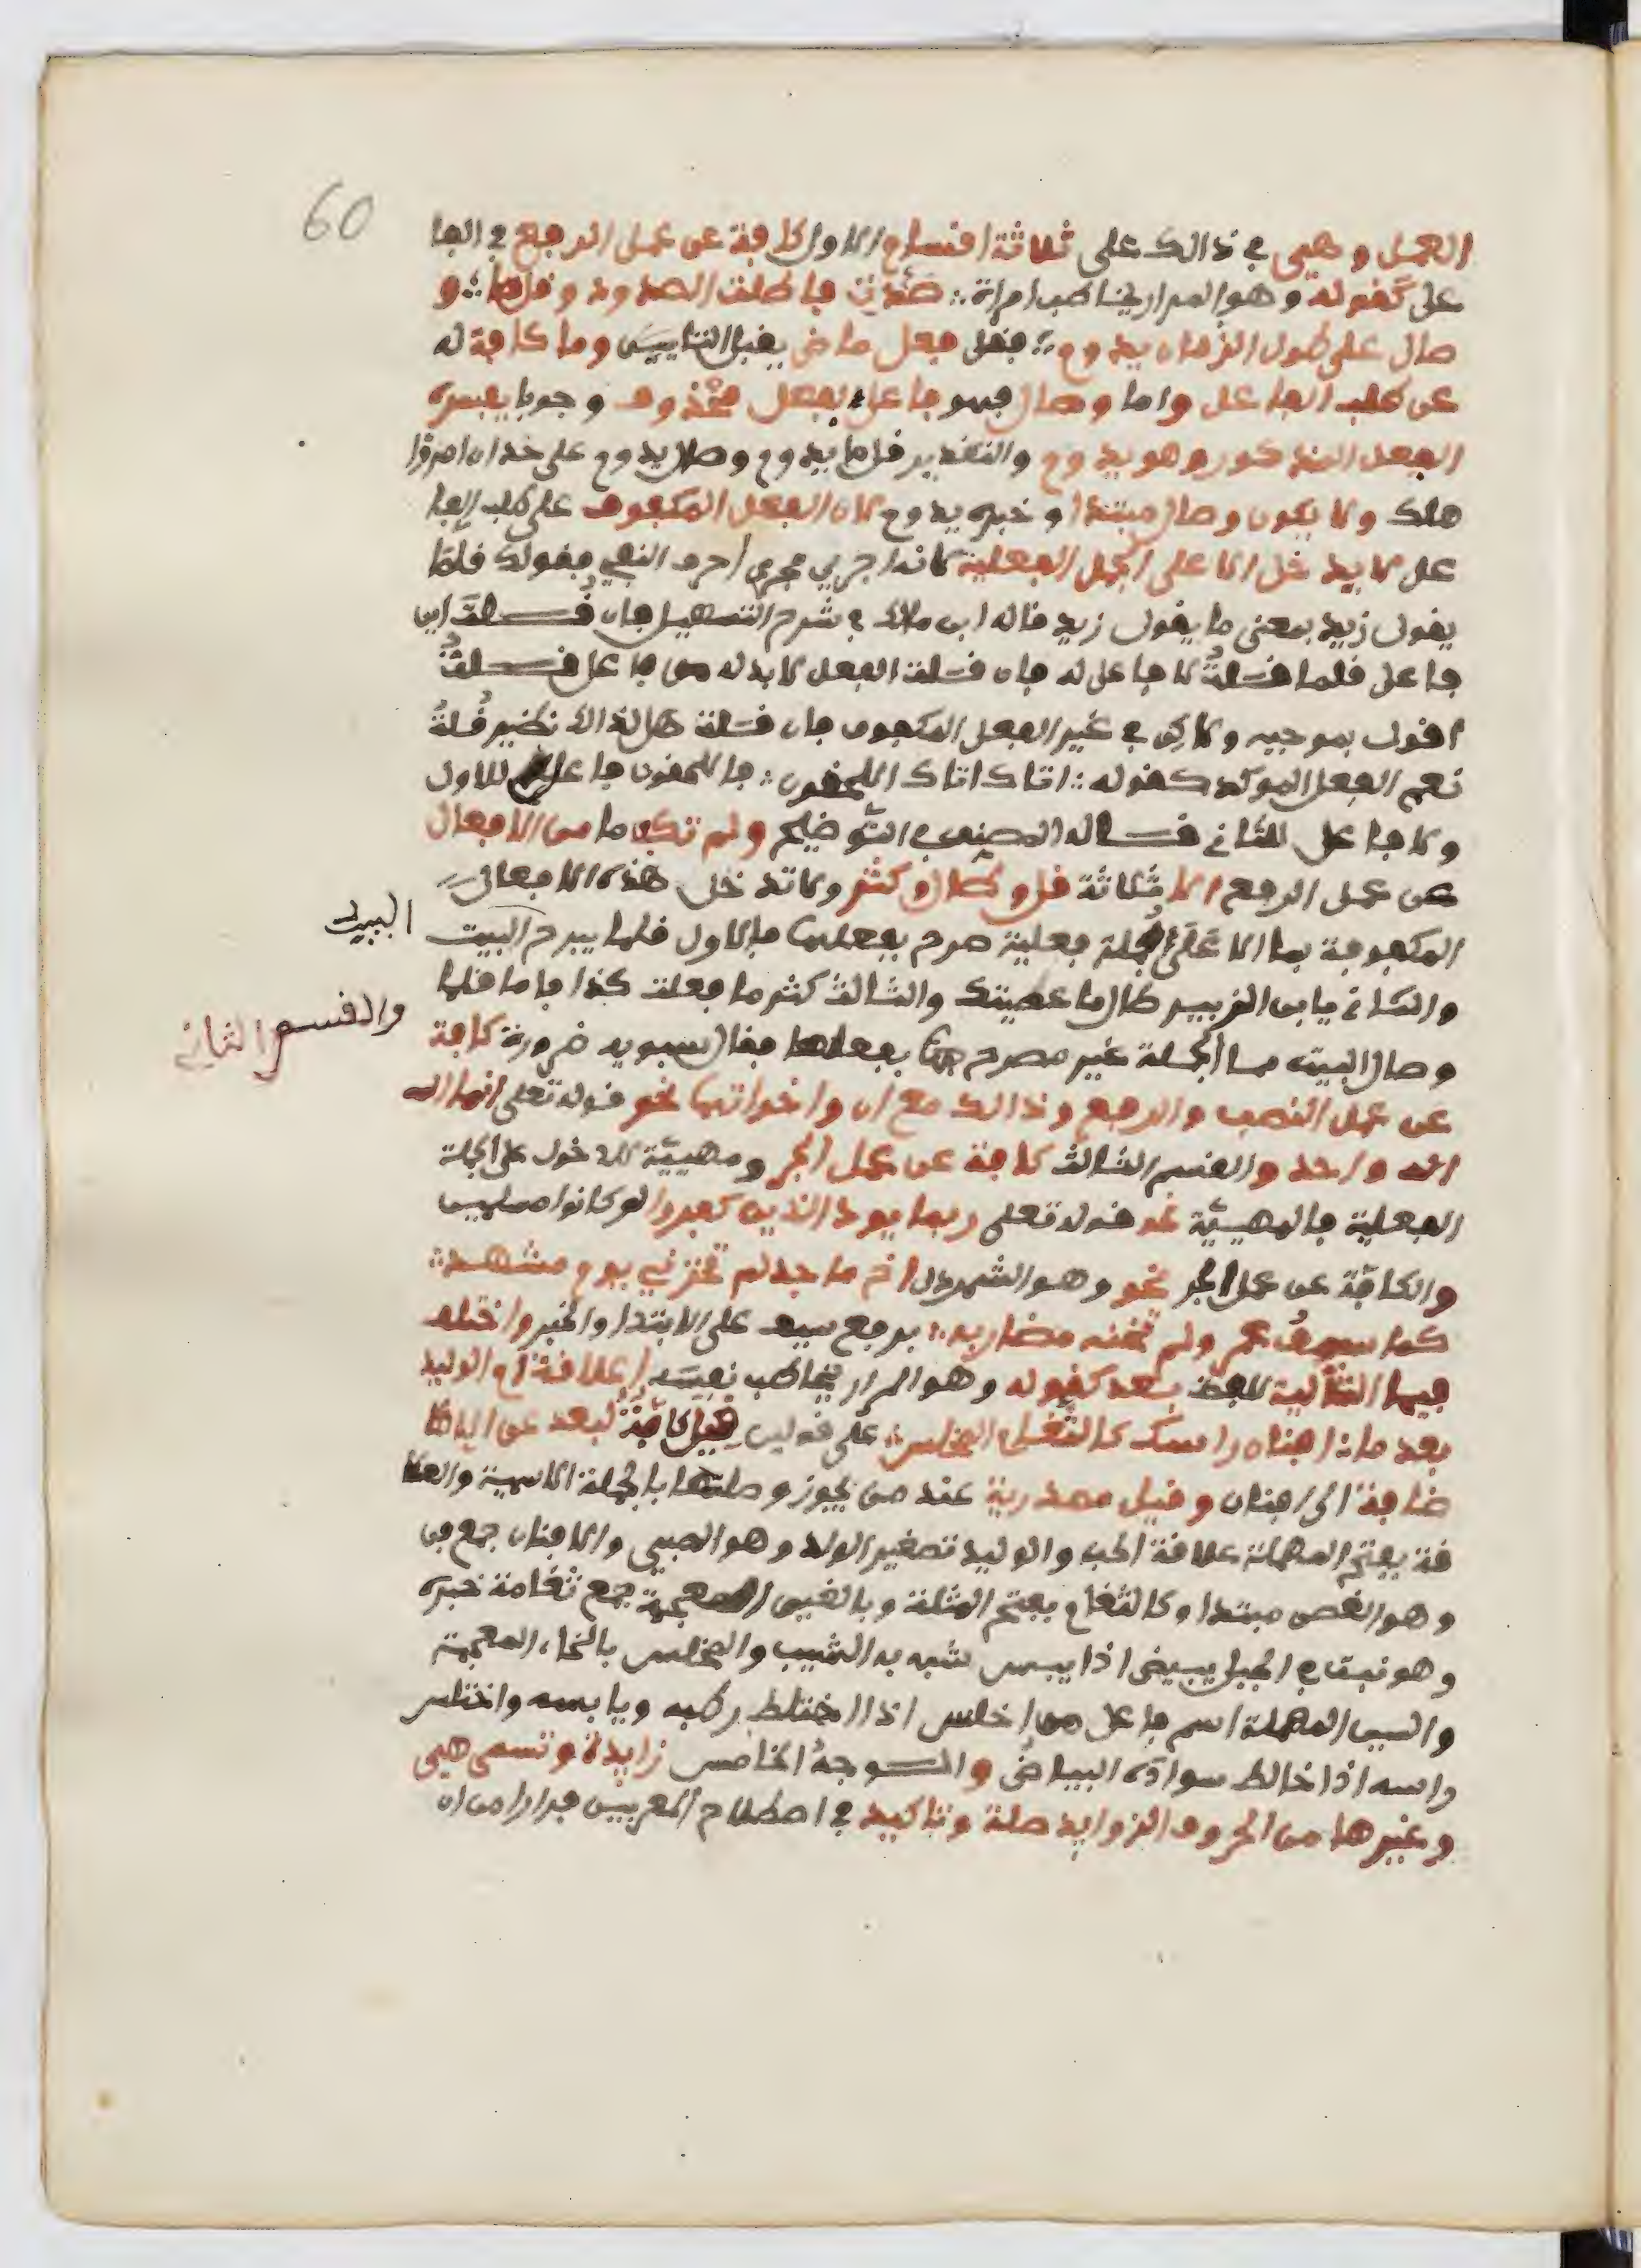 60
العمل وهي في ذالك على ثلاثة اقسام الاول كافة عن عمل الرفع في الفا
على كقوله وهو المرار يخاطب امراة ∴ صددت فاطلت الصدود وقل ما ∴ و
صال على طول الزمان يدوم ∴ فقل فعل ماض يقبل التانيث وما كافة له
عن طلب الفاعل واما وصال فهو فاعل لفعل محذوف وجوبا يفسره
الفعل المذكور وهو يدوم والتقدير قل ما يدوم وصال يدوم على حد ان امرؤا
هلك ولا يكون وصال مبتدا وخبره يدوم لان الفعل المكفوف على طلب الفا
عل لا يدخل الا على الجمل الفعلية لانه اجري مجرى احرف النفي فقولك قلما
يقول زيد بمعنى ما يقول زيد قاله ابن مالك في شرح التسهيل فان قلت اين
فاعل قلما قلت لا فاعل له فان قلت الفعل لا بد له من فاعل قلت
اقول بموجبه ولاكن في غير الفعل المكفوف فان قلت هل لذالك نظير قلت
نعم الفعل الموكد كقوله ∴ اتاك اتاك اللاحقون ∴ فاللاحقون فاعل للاول
ولا فاعل للثاني قاله المصنف في التوضيح ولم تكف ما من الافعال
عن عمل الرفع الا ثلاثة قل وطال وكثر ولا تدخل هذه الافعال
المكفوفة بما الا على جملة فعلية صرح بفعلها فالاول قلما يبرح البيت
البيد
والثاني يابن الزبير طال ما عصيتك والثالث كثر ما فعلت كذا فاما قلما
وصال البيت مما الجملة غير مصرح بفعلها فقال سيبويه ضرورة كافة
والقسم الثاني
عن عمل النصب والرفع وذالك مع ان واخواتها نحو قوله تعلى انما الله
اله واحد والقسم الثالث كافة عن عمل الجر ومهيئة للدخول على الجملة
الفعلية فالمهيئة نحو قوله تعلى ربما يود الذين كفروا لو كانوا مسلمين
والكافة عن عمل الجر نحو وهو الشمردل اخ ماجد لم تخزني يوم مشهد ∴
كما سيف عمر ولم تخنه مضاربه ∴ برفع سيف على الابتدا والخبر واختلف
فيما التالية للفظ بعد كقوله وهو المرار يخاطب نفسه اعلاقة ام الوليد
بعد ما ∴ افنان راسك كالثغام المخلس ∴ على قولين فقيل كافة لبعد عن الا
ضافة الى افنان وقيل مصدرية عند من يجوز وصلها بالجملة الاسمية والعلا
قة بفتح المهملة علاقة الحب والوليد تصغير الولد وهو الصبي والافنان جمع فن
وهو الغصن مبتدا وكالثغام بفتح المثلثة وبالغين المعجمة جمع ثغامة خبره
وهو نبت في الجبل يبيض اذا يبس شبه به الشيب والمخلس بالخاء المعجمة
والسين المهملة اسم فاعل من اخلس اذا اختلط رطبه ويابسه واختلس
راسه اذا خالط سواده البياض والوجه الخامس زايدة وتسمى هي
وغيرها من الحروف الزوايد صلة وتاكيد في اصطلاح المعربين فرارا من ان